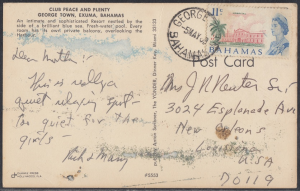 CLUB PEACE AND PLENTY
GEORGE TOWN, EXUMA, BAHAMAS
An intimate and sophisticated Resort nestled by the
side of a brilliant blue sea. Fresh-water pool. Every
room has its own private balcony, overlooking the
Harbour.
GEORGE
BAHAMAS
11c
BAHAMAS
Post Card
Dear Mother:
This is really a
quiet relaxing spot-
to quiet for the
girls -
Dick & Mary
Mrs J R Reuter Sr
3024 Esplanade Ave
New Orleans
Louisiana
USA
70119